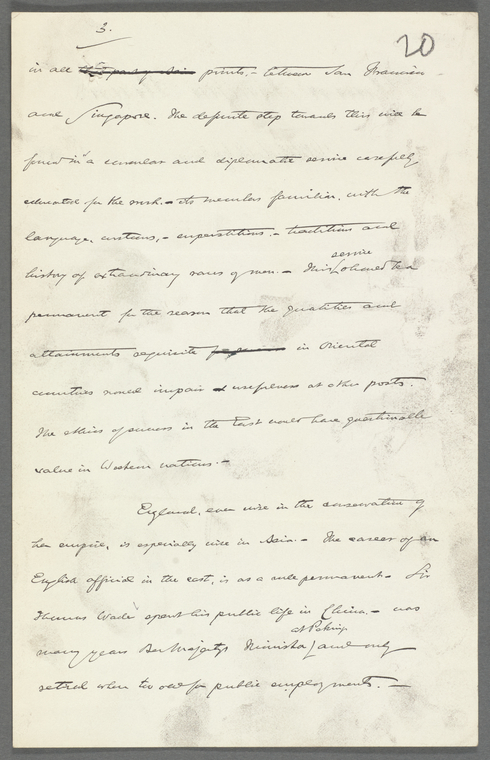 3.
20
in all prints. - between San Francisco
and Singapore. The definite step towards this will be
found in a consular and diplomatic service carefully
educated for the work. - its members familiar, with the
language, customs, - superstitions, - traditions and
history of extraordinary races of men. - This service should be
permanent for the reason that the qualities and
attainments requisite in Oriental
countries would impair usefulness at other posts.
The ethics of success in the East would have questionable
value in Western nations. -
England, ever wise in the conservation of
her empire, is especially wise in Asia. - The career of an
English official in the east, is as a rule permanent. - Sir
Thomas Wade spent his public life in China. - was
many years Her Majesty's Minister at Peking and only
retired when too old for public employments. -